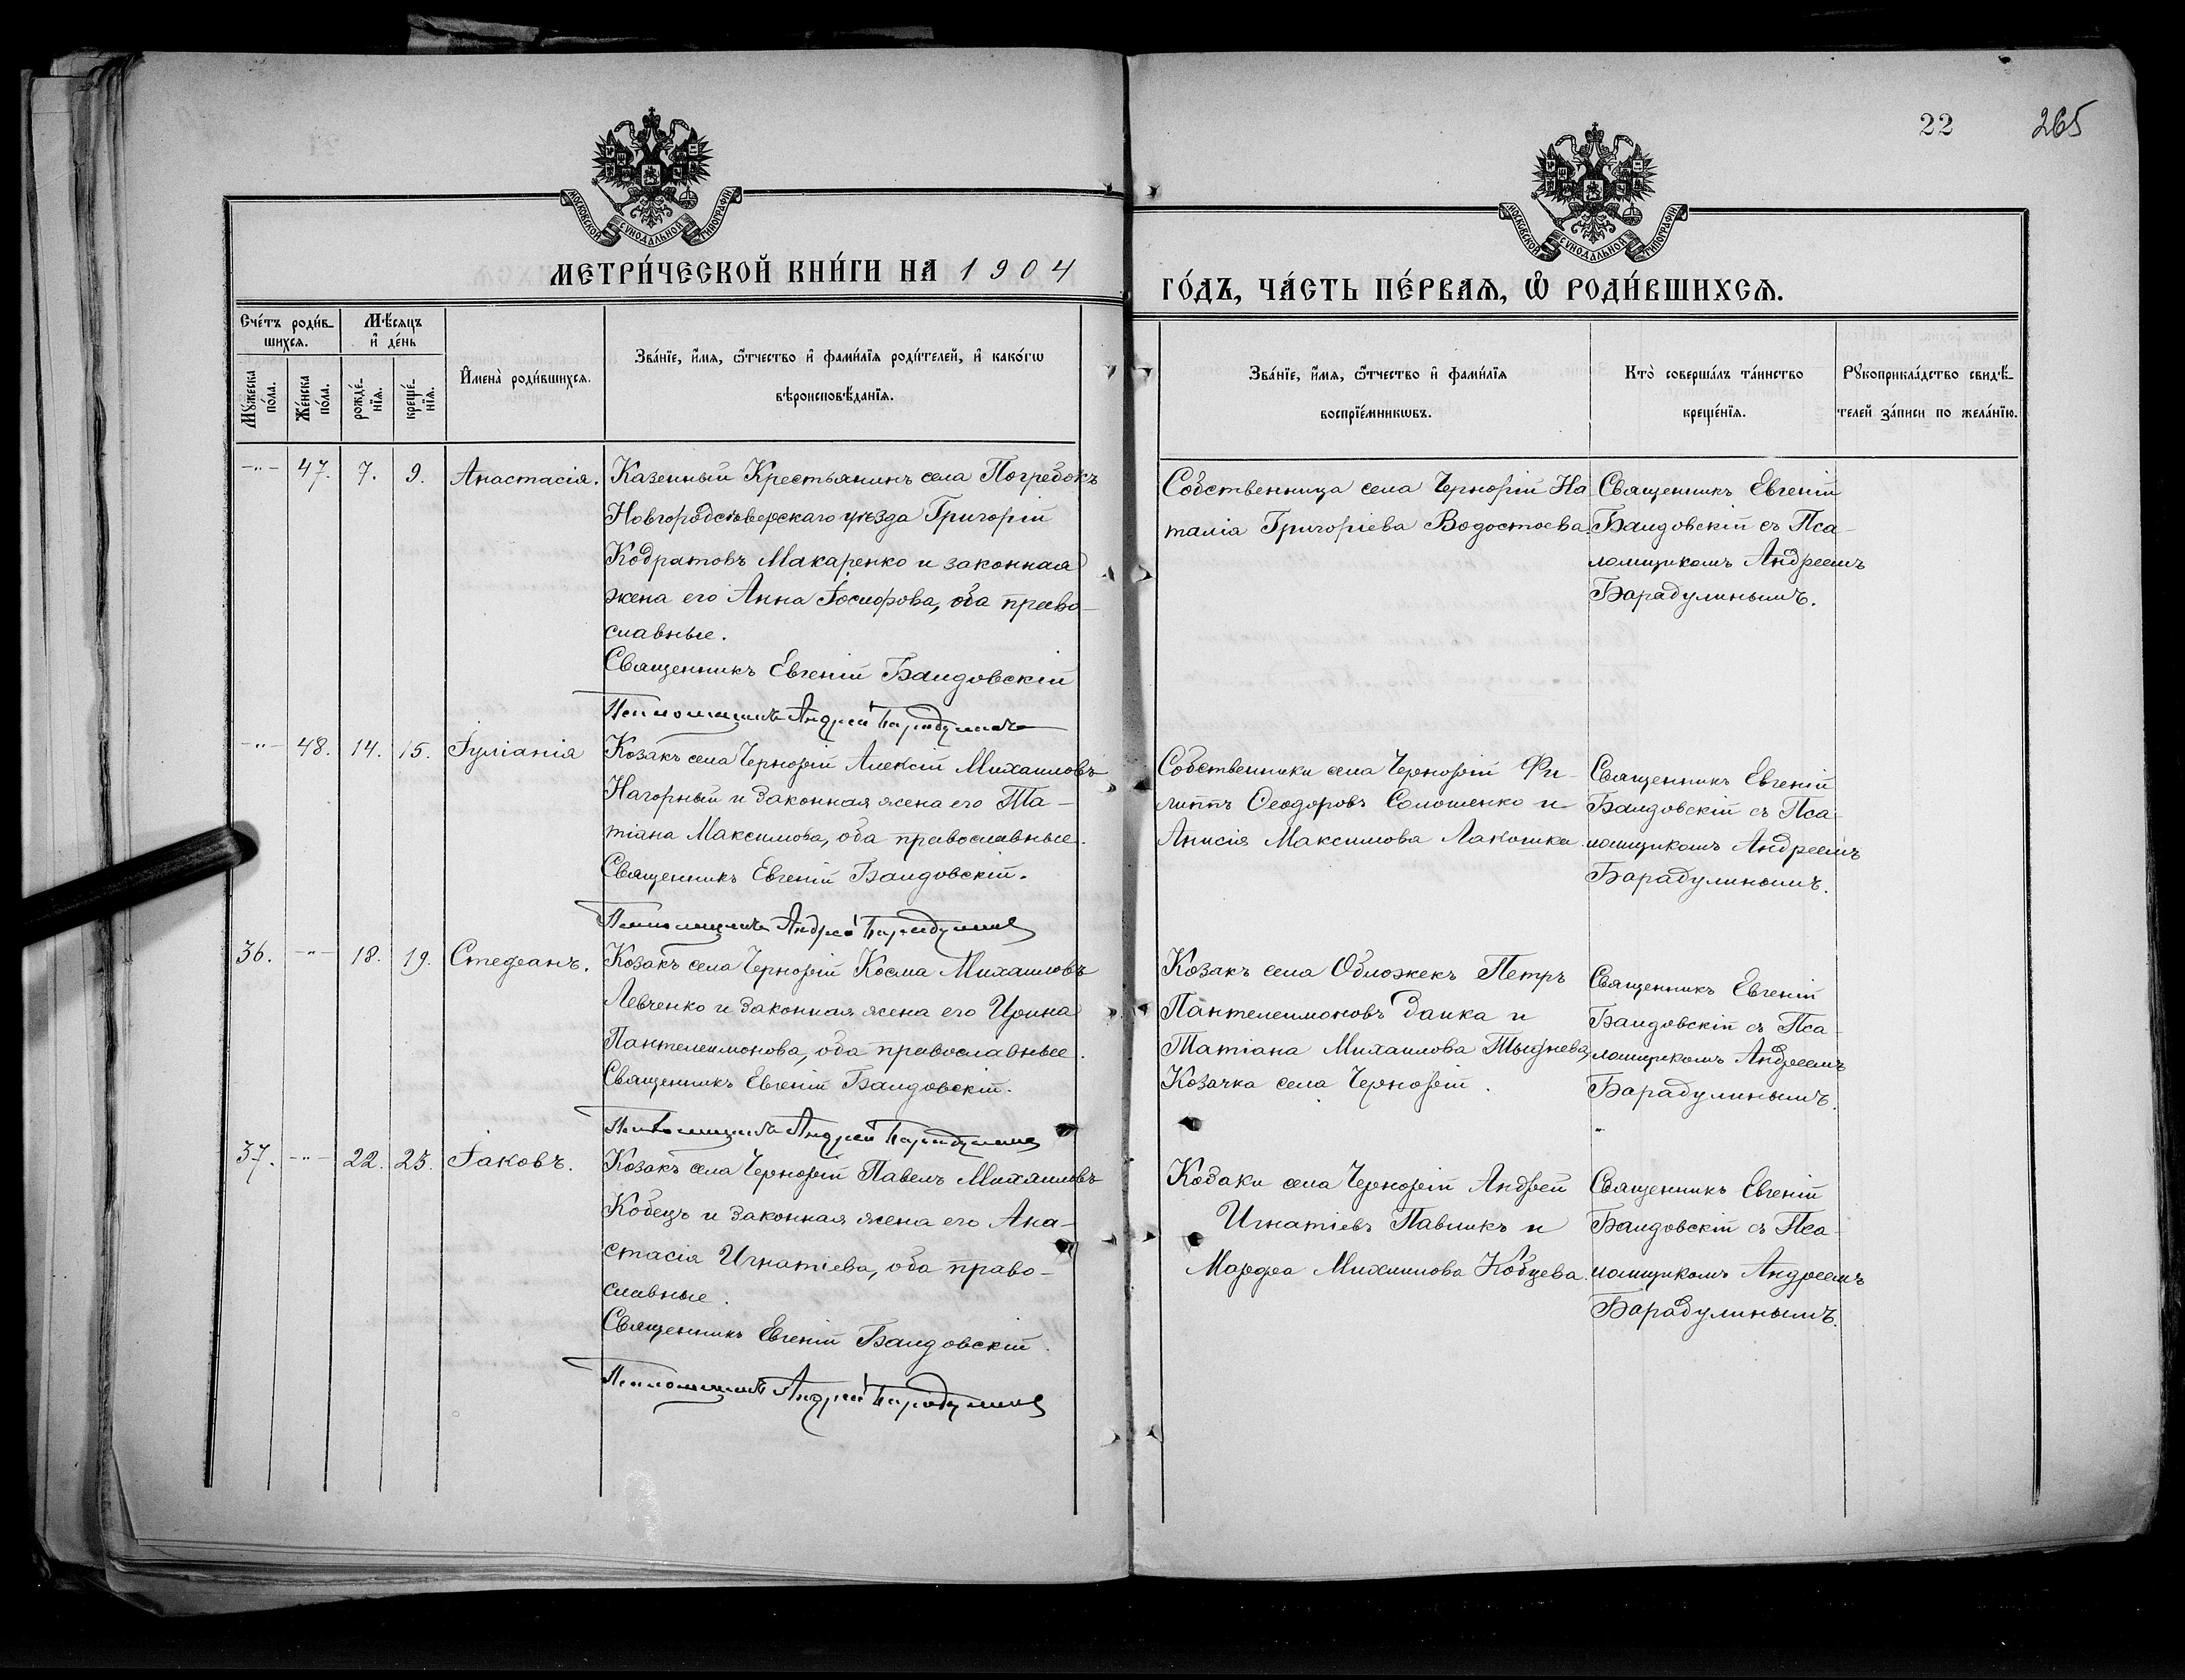 22 265
МОСКОВСКОЙ СѴНОДАЛЬНОЙ ТИПОГРАФІИ
МОСКОВСКОЙ СѴНОДАЛЬНОЙ ТИПОГРАФІИ
МЕТРИ́ЧЕСКОЙ КНИ́ГИ НА 1904
ГО́ДЪ, ЧА́СТЬ ПЕ́РВАѦ, Ѽ РОДИ́ВШИХСѦ.
Сче́тъ роди́в-
шихсѧ.
Мꙋ́жеска по́ла.
Же́нска по́ла.
Мѣ́сѧцъ
и҆ де́нь
рожде́-
нїѧ.
креще́-
нїѧ.
И҆мена̀ роди́вшихсѧ.
Зва́нїе, и҆́мѧ, ѻ҆́тчество и҆ фами́лїѧ роди́телей, и҆ како́гѡ
вѣроисповѣ́данїѧ.
Зва́нїе, и҆́мѧ, ѻ҆́тчество и҆ фами́лїѧ
воспрїе́мникѡвъ.
Кто̀ соверша́лъ та́инство
креще́нїѧ.
Рꙋкоприкла́дство свидѣ́-
телей за́писи по жела́нїю.
-"- 47. 7. 9. Анастасія.
Казенный Крестьянинъ села Погребокъ
Новгородсѣверскаго уѣзда Григорій
Кодратовъ Макаренко и законная
жена его Анна Іосифова, оба право-
славные.
Священникъ Евгеній Баидовскій
Псаломщикъ Андрей Барадулинъ
Собственница села Черторій На
талія Григоріева Водостоева.
Священникъ Евгеній
Баидовскій съ Пса-
ломщикомъ Андреемъ
Барадулинымъ.
-"- 48. 14. 15. Іуліанія
Козакъ села Черторій Алексій Михаиловъ
Нагорный и законная жена его Та-
тіана Максимова, оба православные.
Священникъ Евгеній Баидовскій.
Псаломщикъ Андрей Барадулинъ
Собственники села Черторій Фи-
липпъ Ѳеодоровъ Соломенко и
Анисія Максимова
Священникъ Евгеній
Баидовскій съ Пса
ломщикомъ Андреемъ
Барадулинымъ.
36. -"- 18. 19. Стефанъ.
Козакъ села Черторій Косма Михаиловъ
Левченко и законная жена его Ирина
Пантелеимонова, оба православные.
Священникъ Евгеній Баидовскій.
Псаломщикъ Андрей Барадулинъ
Козакъ села Обложекъ Петръ
Пантелеимоновъ Заика и
Татіана Михаилова
Козачка села Черторій.
Священникъ Евгеній
Баидовскій съ Пса-
ломщикомъ Андреемъ
Барадулинымъ.
37. -"- 22. 23. Іаковъ.
Козакъ села Черторій Павелъ Михаиловъ
Кобецъ и законная жена его Ана-
стасія Игнатіева, оба право-
славные.
Священникъ Евгеній Баидовскій.
Псаломщикъ Андрей Барадулинъ
Козаки села Черторій Андрей
Игнатіевъ Павликъ и
Марфа Михаилова Кобцева.
Священникъ Евгеній
Баидовскій съ Пса-
ломщикомъ Андреемъ
Барадулинымъ.